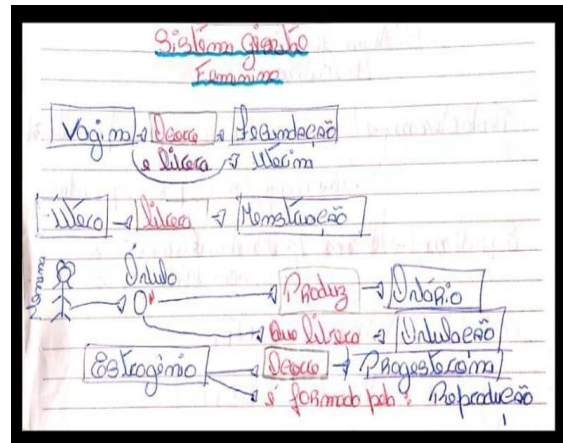 Sistema genito
Feminino
Vagina Fecundação
e libera Vacina
Útero libera Menstruação
Óvulo
Feminina Produz Ovário
que libera Ovulação
Estrogênio Progesterona
é formado pela: Reprodução